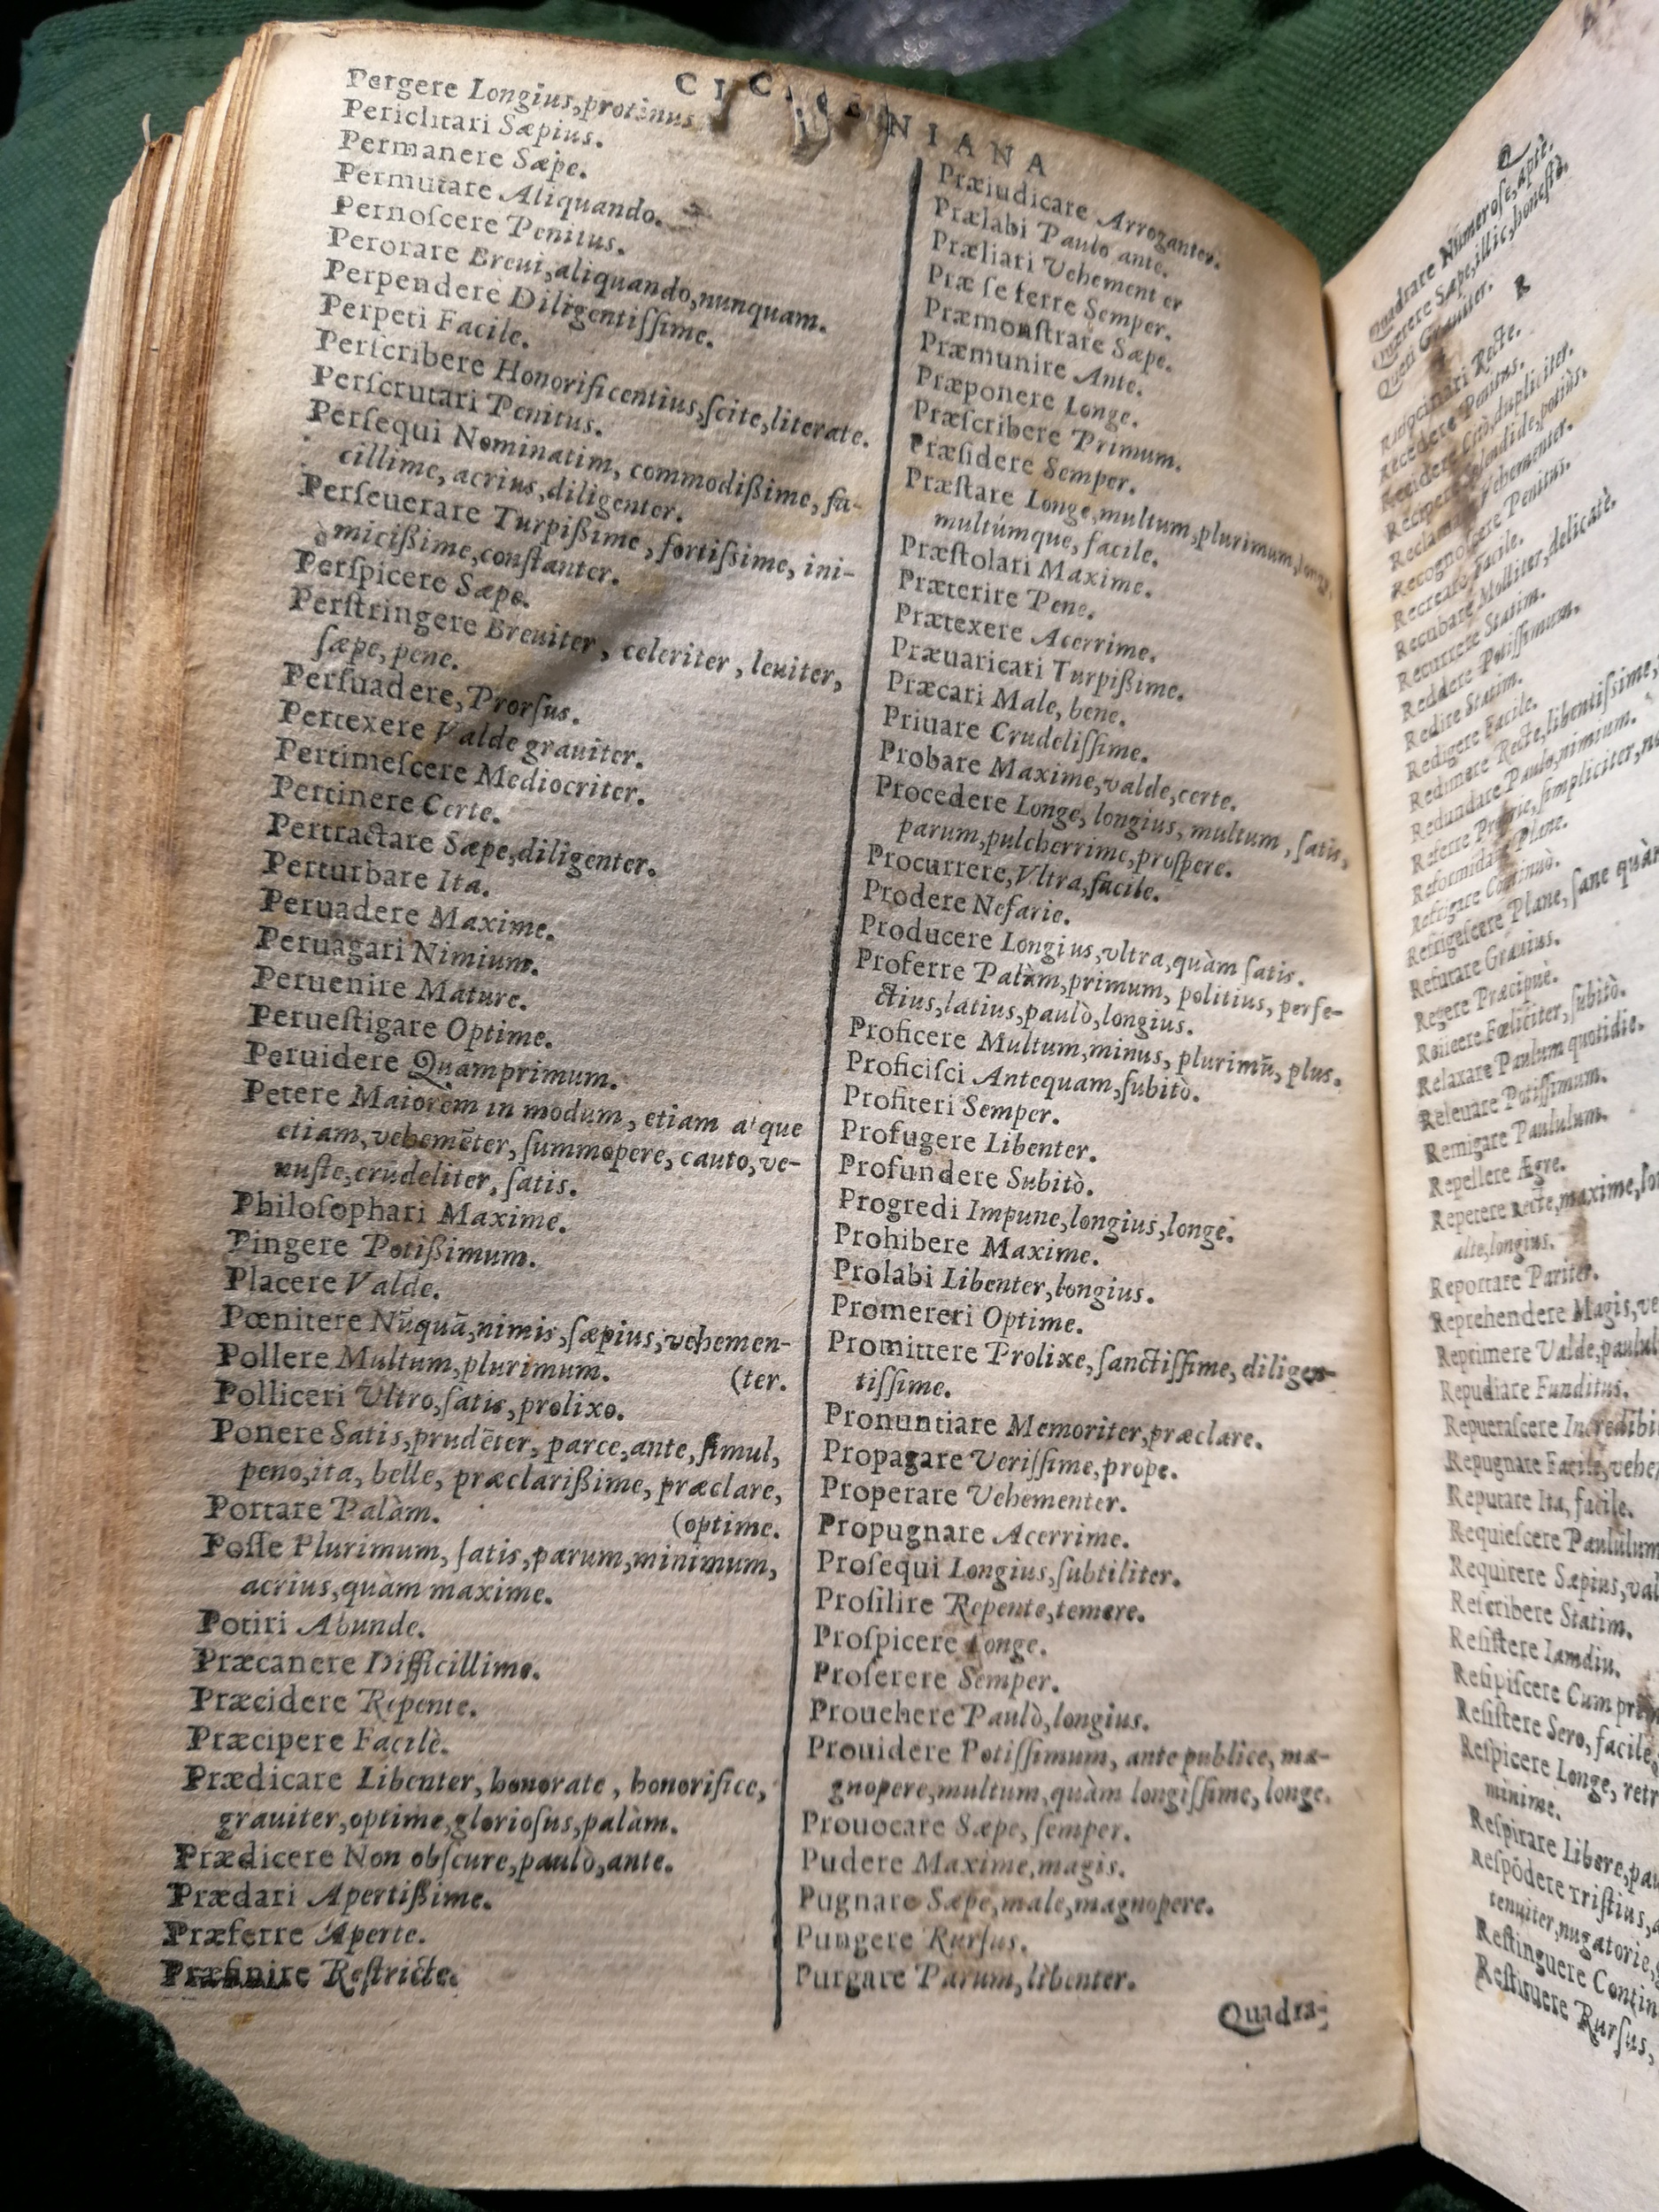 CICERONIANA
Pergere Longius,protinus.
Periclitari Sæpius.
Permanere Sæpe.
Permutare Aliquando.
Pernoſcere Penitus.
Perorare Breui,aliquando,nunquam.
Perpendere Diligentiſſime.
Perpeti Facile.
Perſcribere Honorificentius,ſcite,literate.
Perſcrutari Penitus.
Perſequi Nominatim, commodißime, fa-
cillime, acrius,diligenter.
Perſeuerare Turpißime, fortiſsime, ini-
micißime,conſtanter.
Perſpicere Sæpe.
Perſtringere Breuiter, celeriter, leuiter,
ſæpe, pene.
Perſuadere, Prorſus.
Pertexere Valde grauiter.
Pertimeſcere Mediocriter.
Pertinere Certe.
Pertractare Sæpe,diligenter.
Perturbare Ita.
Peruadere Maxime.
Peruagari Nimium.
Peruenire Mature.
Perueſtigare Optime.
Peruidere Quamprimum.
Petere Maiorem in modum, etiam atque
etiam, vehemēter, ſummopere, caute, ve-
nuſte,crudeliter, ſatis.
Philoſophari Maxime.
Pingere Potißimum.
Placere Valde.
Pœnitere Nūquā,nimis,ſæpius,vehemen-
Pollere Multum,plurimum. (ter.
Polliceri Vltro,ſatis,prolixe.
Ponere Satis,prudēter, parce,ante,ſimul,
pene,ita, belle, præclarißime, præclare,
Portare Palàm. (optime.
Poſſe Plurimum, ſatis,parum,minimum,
acrius,quàm maxime.
Potiri Abunde.
Præcanere Difficillime.
Præcidere Repente.
Præcipere Facilè.
Prædicare Libenter, honorate, honorifice,
grauiter,optime,glorioſus,palàm.
Prædicere Non obſcure,paulò,ante.
Prædari Apertißime.
Præferre Aperte.
Præfinire Reſtricte.
Præiudicare Arroganter.
Prælabi Paulo ante.
Præliati Vehement er
Præ ſe ferre Semper.
Præmonſtrare Sæpe.
Præmunire Ante.
Præponere Longe.
Præſcribere Primum.
Præſidere Semper.
Præſtare Longe,multum,plurimum,longe
multúmque, facile.
Præſtolari Maxime.
Præterire Pene.
Prætexere Acerrime.
Præuaricari Turpißime.
Præcari Male, bene.
Priuare Crudeliſſime.
Probare Maxime,valde,certe.
Procedere Longe, longius, multum, ſatis,
parum,pulcherrime,proſpere.
Procurrere,Vltra,facile.
Prodere Nefarie.
Producere Longius,vltra,quàm ſatis.
Proferre Palàm,primum, politius, perfe-
ctius,latius,paulò,longius.
Proficere Multum,minus, plurimū, plus.
Proficiſci Antequam,ſubitò.
Profiteri Semper.
Profugere Libenter.
Profundere Subitò.
Progredi Impune,longius,longe.
Prohibere Maxime.
Prolabi Libenter,longius.
Promereri Optime.
Promittere Prolixe,ſanctiſſime, diligen-
tiſſime.
Pronuntiare Memoriter,præclare.
Propagare Veriſſime,prope.
Properare Vehementer.
Propugnare Acerrime.
Proſequi Longius,ſubtiliter.
Proſilire Repente,temere.
Proſpicere Longe.
Proſerere Semper.
Prouehere Paulò,longius.
Prouidere Potiſſimum, ante publice, ma-
gnopere,multum,quàm longiſſime, longe.
Prouocare Sæpe, ſemper.
Pudere Maxime,magis.
Pugnare Sæpe,male,magnopere.
Pungere Rurſus.
Purgare Parum,libenter.
Quadra-
Q
Quadrare Numeroſe,aptè.
Quærere Sæpe,illic,honeſtò.
Queri Grauiter.
R
Ratiocinari Recte.
Recedere Penitus.
Recidere Citò,dupliciter.
Recipere Splendide,potiùs.
Reclamare Vehementer.
Recognoſcere Penitus.
Recreare Facile.
Recubare Molliter,delicatè.
Recurrere Statim.
Reddere Potiſſimum.
Redire Statim.
Redigere Facile.
Redimere Recte,libentiſsime,
Redundare Paulo,nimium.
Referre Proprie,ſimpliciter,
Reformidare Plane.
Refrigare Continuò.
Refrigeſcere Plane, ſane quàm
Refutare Grauius.
Regere Præcipuè.
Reiicere Fœliciter, ſubitò.
Relaxare Paulum quotidie.
Releuare Potiſſimum.
Remigare Paululum.
Repellere Ægre.
Repetere Recte,maxime,
alte,longius.
Reportare Pariter.
Reprehendere Magis,
Reprimere Valde,
Repudiare Funditus.
Repueraſcere
Repugnare Facile,
Reputare Ita, facile.
Requieſcere Paululum
Requirere Sæpius,
Reſcribere Statim.
Reſiſtere Iamdiu.
Reſipiſcere Cum
Reſiſtere Sero, facile,
Reſpicere Longe,
minime.
Reſpirare Libere,
Reſpōdere Triſtius,
tenuiter,nugatorie,
Reſtinguere
Reſtituere Rurſus,